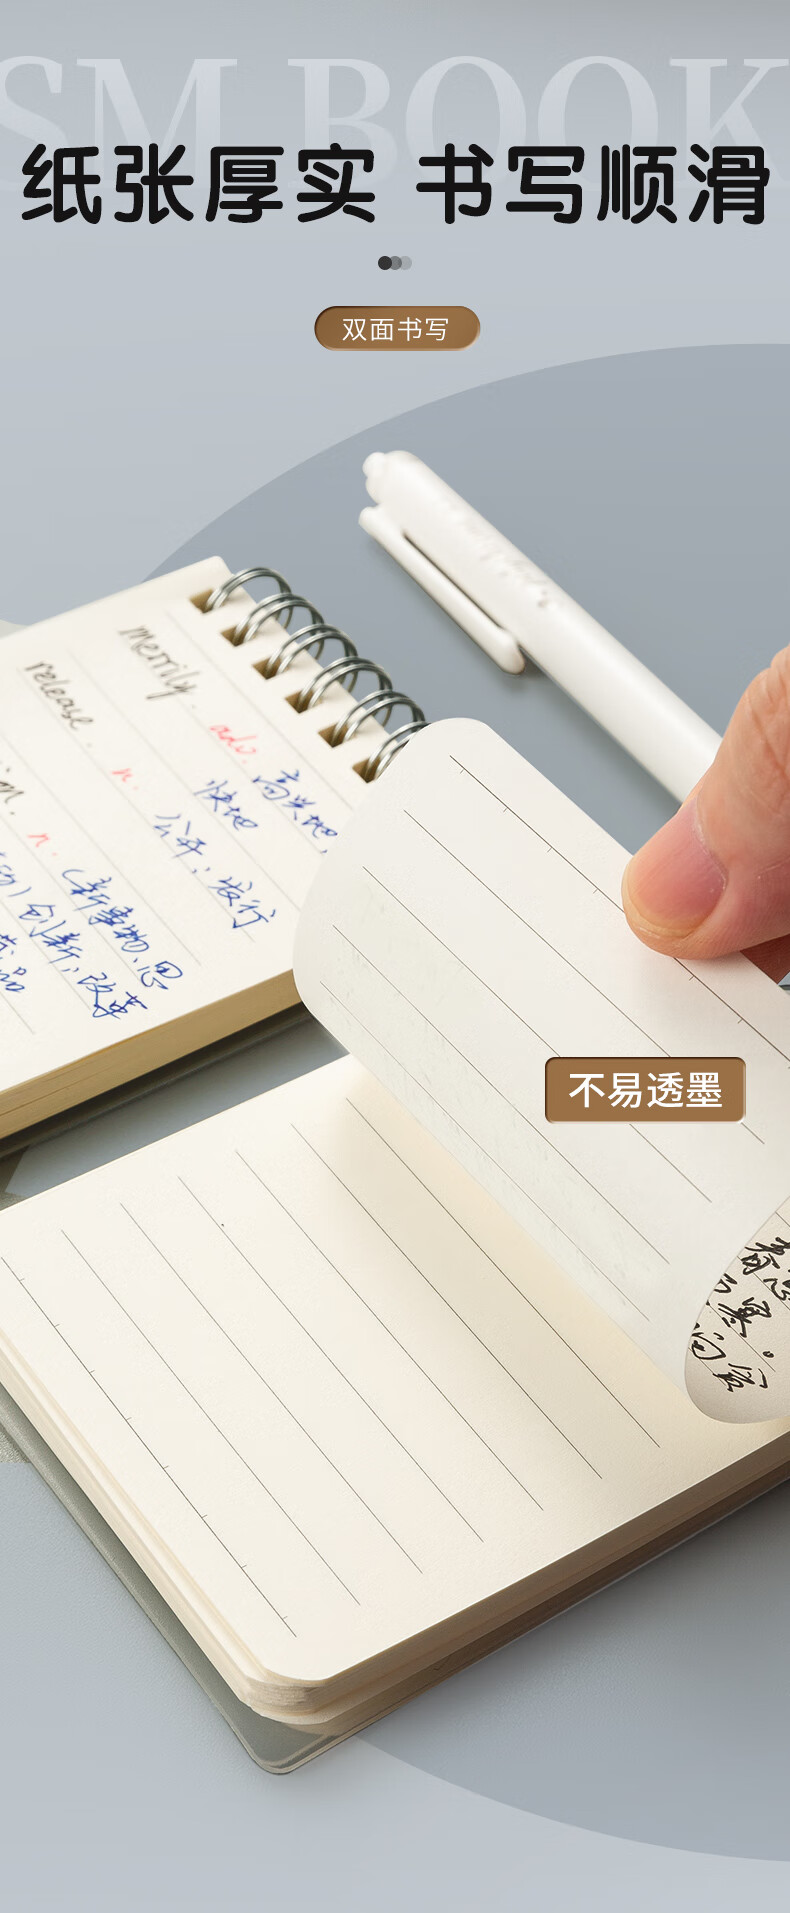 SM BOOK
纸张厚实 书写顺滑
双面书写
merrily. adv. 高兴地,
快地
release. n. 公开;发行
n. (新事物、思
创新;改革
不易透墨